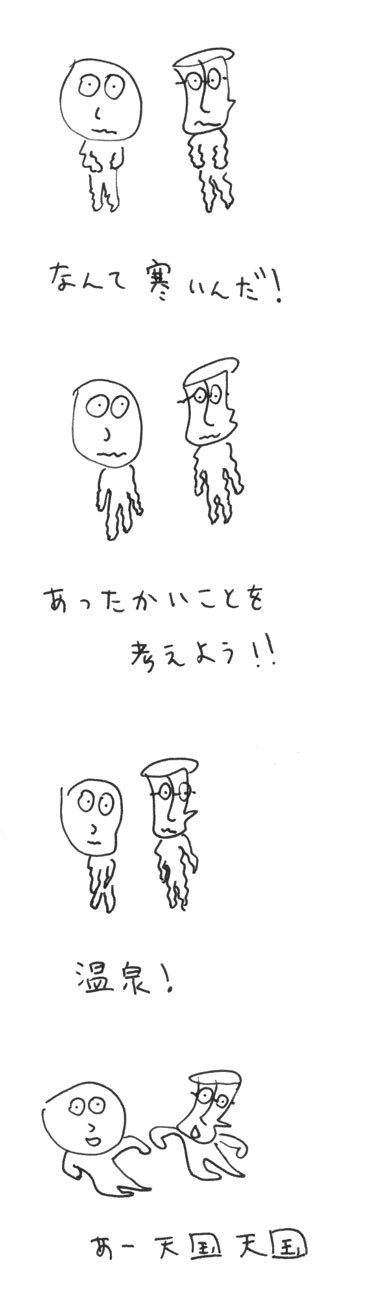 なんて寒いんだ!
あったかいことを
考えよう!!
温泉!
あー天国天国